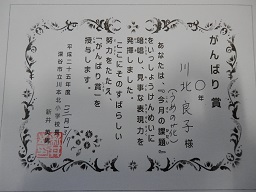 がんばり賞
〇年
川北良子様
あなたは、『今月の課題』
をいっしょうけんめいに
暗唱し、見事な表現力を
発揮しました。
ここにそのすばらしい
努力をたたえ、
「がんばり賞」を
授与します。
平成二十五年度
深谷市立川本北小学校長
新井